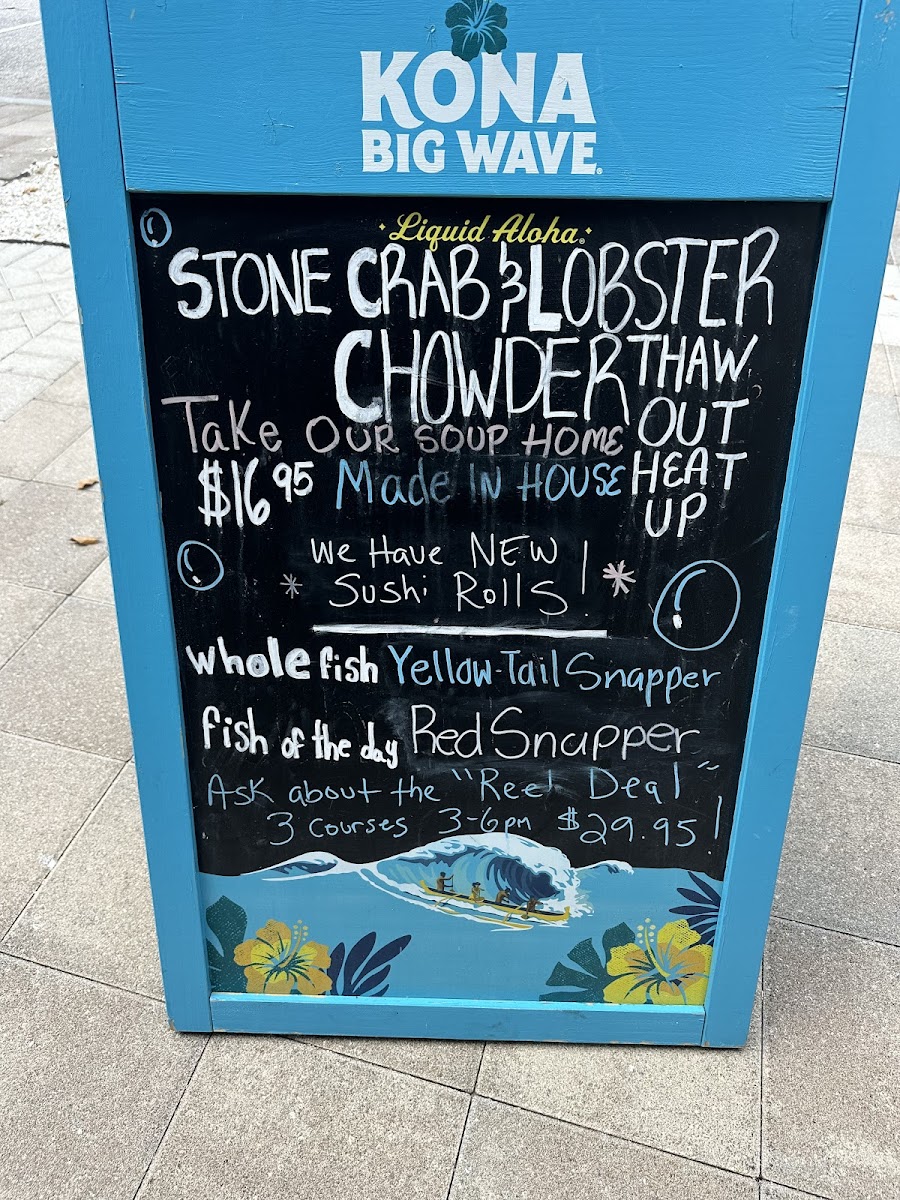 KONA
BIG WAVE®
Liquid Aloha®
STONE CRAB & LOBSTER
CHOWDER
THAW
OUT
HEAT
UP
Take OUR SOUP HOME
$16.95 Made IN HOUSE
We Have NEW
Sushi Rolls!
whole fish Yellow-Tail Snapper
fish of the day Red Snapper
Ask about the "Reel Deal"
3 Courses 3-6pm $29.95!